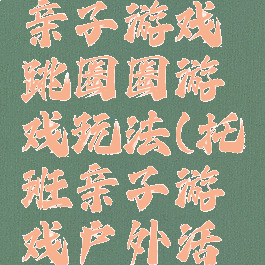 亲子游戏
跳圈圈游
戏玩法(托
班亲子游
戏户外活